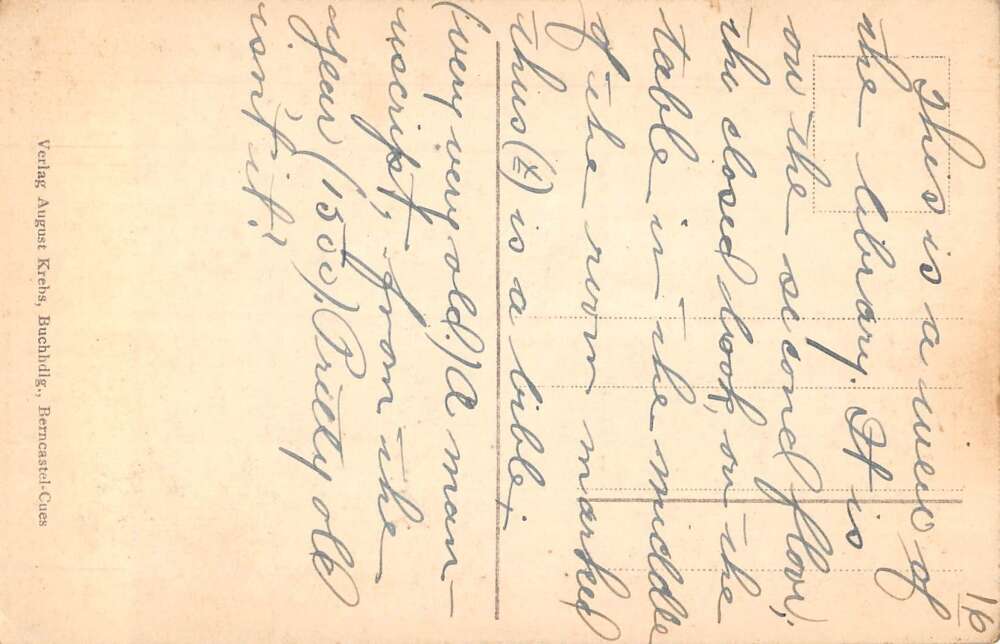 16
This is a view of
the library. It is
on the second floor;
the closed book, on the
table in the middle
of the room marked
thus (x) is a bible,
(very very old.) A man-
uscript, from the
year (1550). Pretty old
isn't it?
Verlag August Krebs, Buchhdlg., Berncastel-Cues